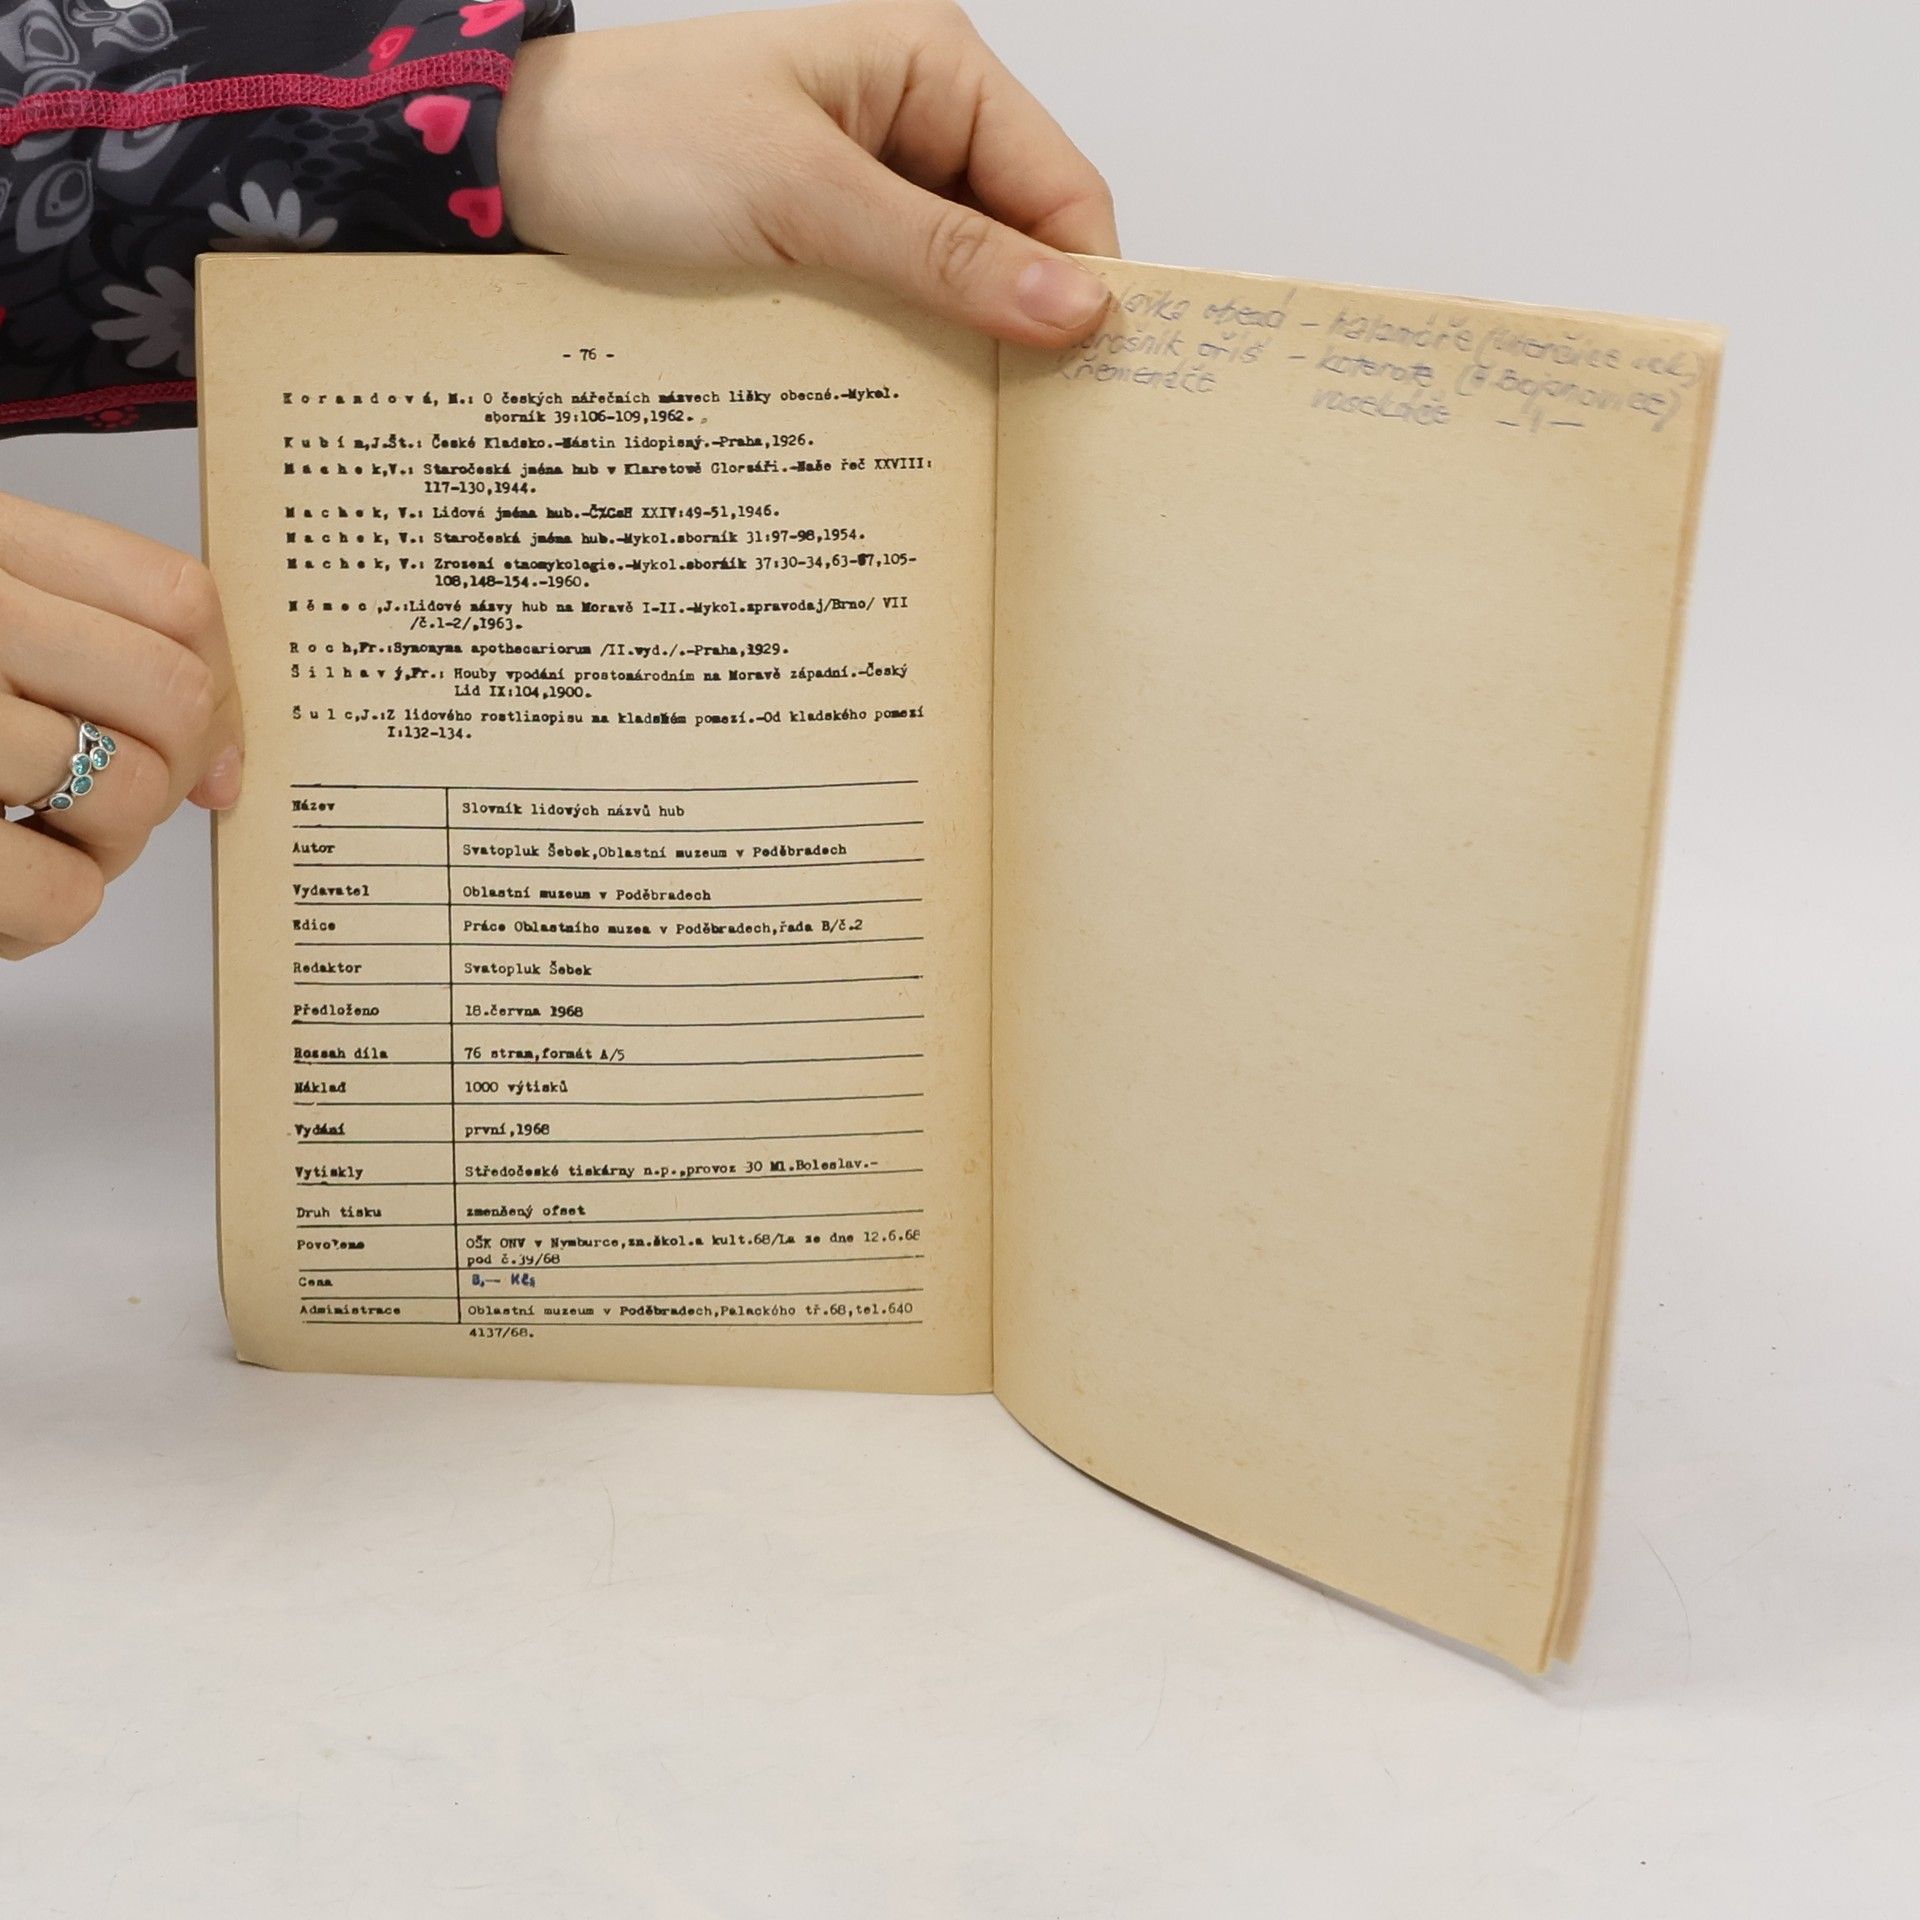 - 76 -
K o r a n d o v á, M.: O českých nářečních názvech lišky obecné.-Mykol.
sborník 39:106-109,1962.
K u b í n,J.Št.: České Kladsko.-Nástin lidopisný.-Praha,1926.
M a c h e k,V.: Staročeská jména hub v Klaretově Glosáři.-Naše řeč XXVIII:
117-130,1944.
M a c h e k, V.: Lidová jména hub.-ČČH XXIV:49-51,1946.
M a c h e k, V.: Staročeská jména hub.-Mykol.sborník 31:97-98,1954.
M a c h e k, V.: Zrození etnomykologie.-Mykol.sborník 37:30-34,63-67,105-
108,148-154.-1960.
N ě m e c ,J.:Lidové názvy hub na Moravě I-II.-Mykol.zpravodaj/Brno/ VII
/č.1-2/,1963.
R o c h,Fr.:Synonyma apothecariorum /II.vyd./.-Praha,1929.
Š i l h a v ý,Fr.: Houby vpodání prostonárodním na Moravě západní.-Český
Lid IX:104,1900.
Š u l c,J.:Z lidového rostlinopisu na kladském pomezí.-Od kladského pomezí
I:132-134.
Název Slovník lidových názvů hub
Autor Svatopluk Šebek,Oblastní muzeum v Poděbradech
Vydavatel Oblastní muzeum v Poděbradech
Edice Práce Oblastního muzea v Poděbradech,řada B/č.2
Redaktor Svatopluk Šebek
Předloženo 18.června 1968
Rozsah díla 76 stran,formát A/5
Náklad 1000 výtisků
Vydání první,1968
Vytiskly Středočeské tiskárny n.p.,provoz 30 Ml.Boleslav.-
Druh tisku zmenšený ofset
Povoleno OŠK ONV v Nymburce,zn.škol.a kult.68/La ze dne 12.6.68
pod č.39/68
Cena 8,- Kčs
Administrace Oblastní muzeum v Poděbradech,Palackého tř.68,tel.640
4137/68.
křemenáče